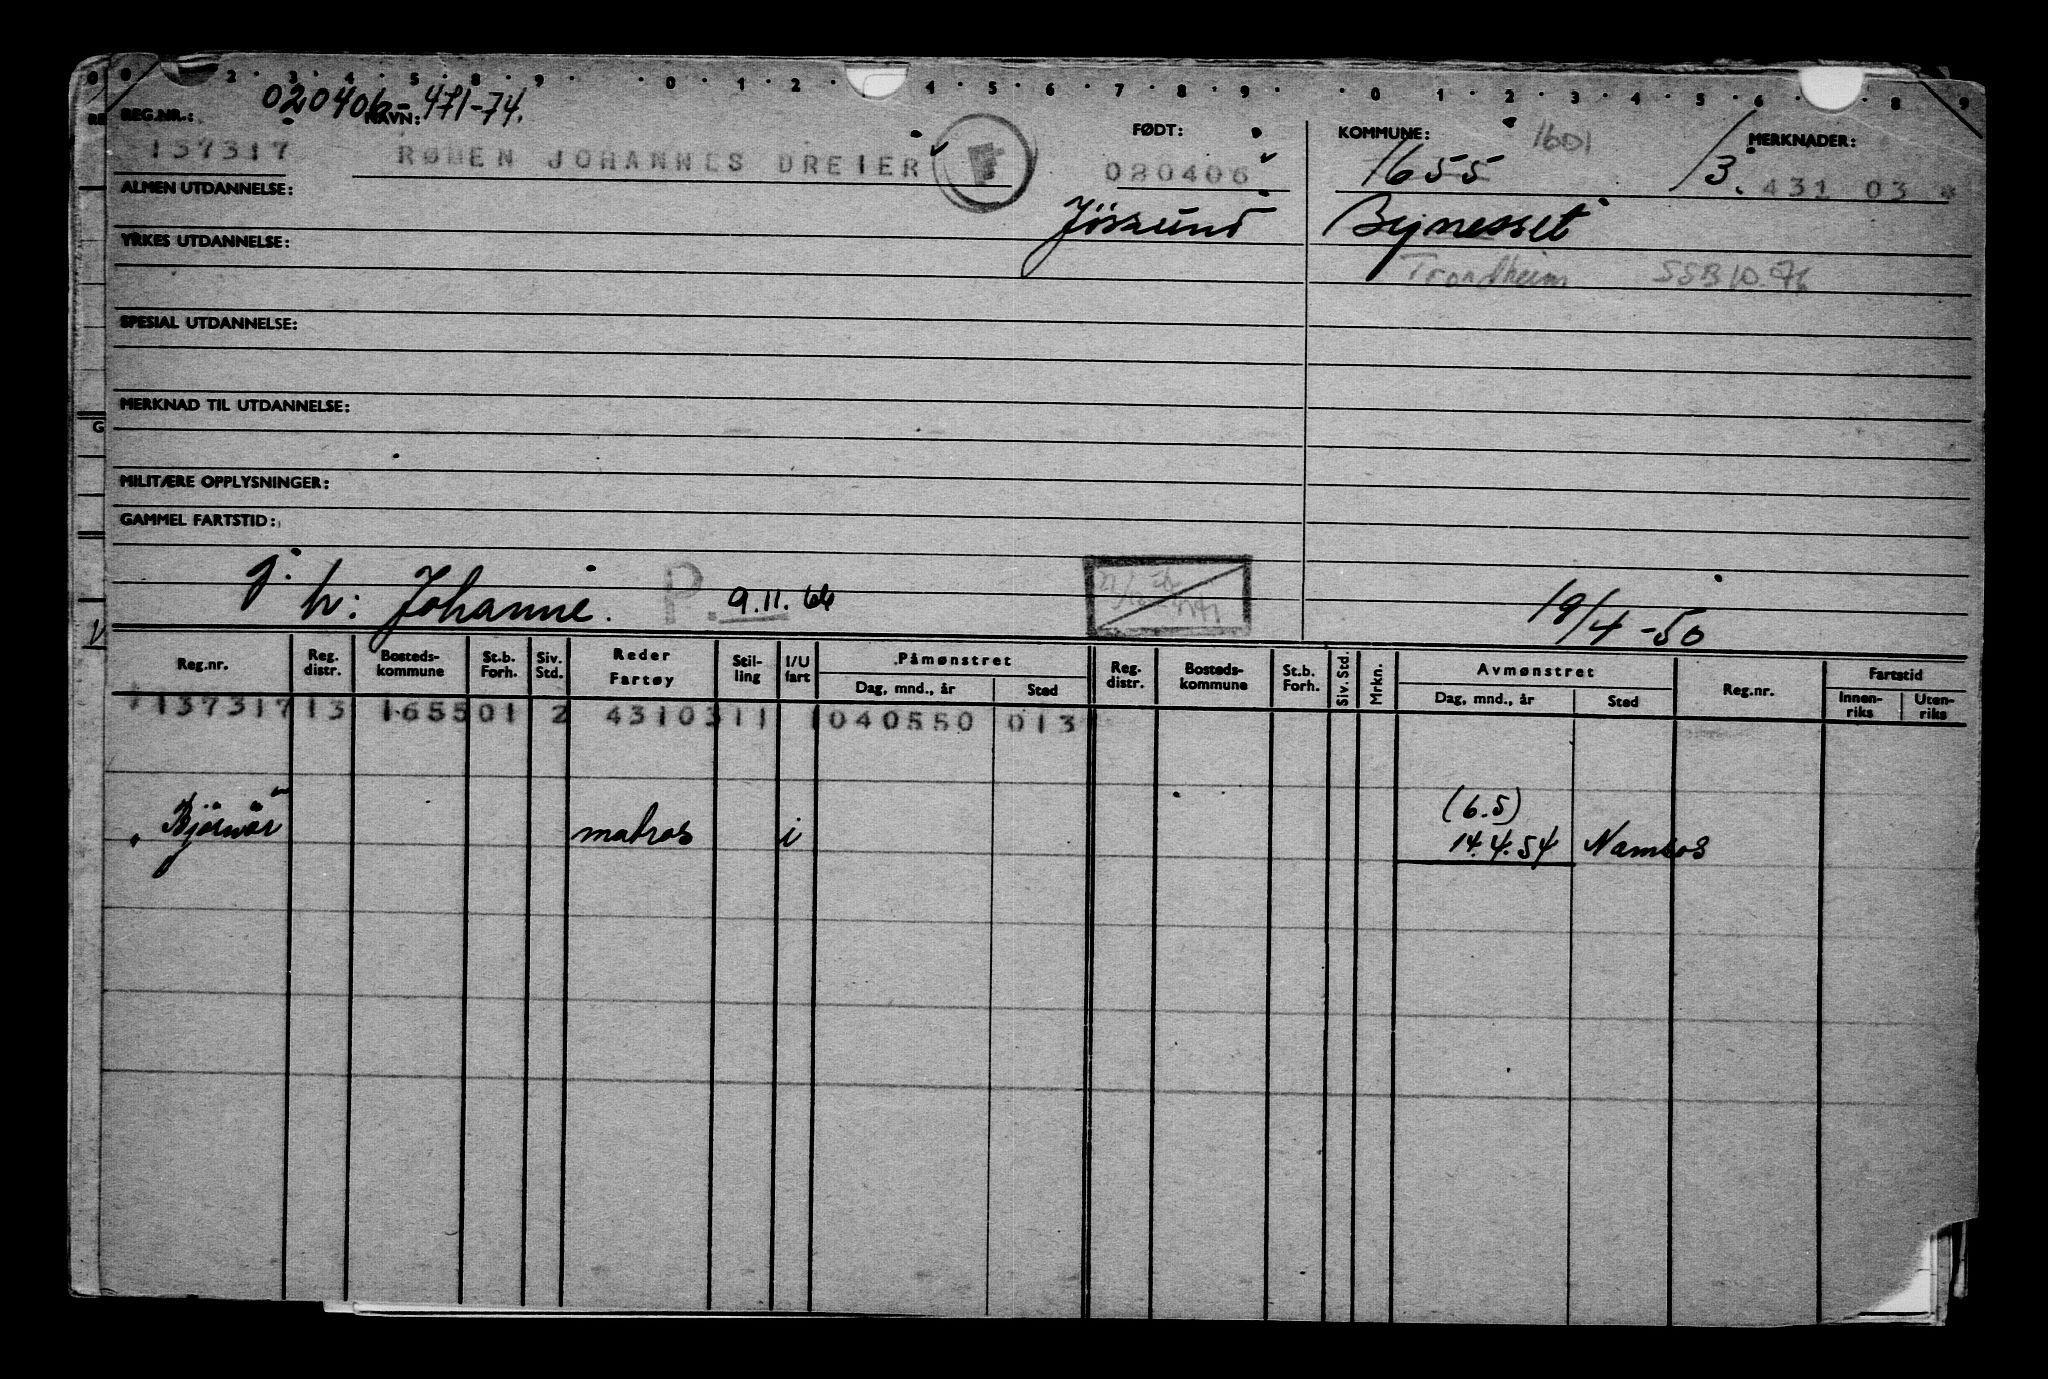 0 0 2 3 4 5 8 9 0 1 2 4 5 6 7 8 9 0 1 2 3 4 5 6 8 9
020406-471-74.
REG.NR.: NAVN: FØDT: KOMMUNE: 1601 MERKNADER:
137317 RØMEN JOHANNES DREIER 020406 1655 /3. 431 03
ALMEN UTDANNELSE:
Jössund Bynesset
YRKES UTDANNELSE:
Trondheim SSB 10.76
SPESIAL UTDANNELSE:
MERKNAD TIL UTDANNELSE:
G
MILITÆRE OPPLYSNINGER:
GAMMEL FARTSTID:
g. h: Johanne. P. 9.11.66 19/4-50
Reg.nr. Reg. distr. Bosteds-kommune St.b. Forh. Siv. Std. Reder Fartøy Stil-ling I/U fart Påmønstret Reg. distr. Bosteds-kommune St.b. Forh. Siv. Std. Mrkn. Avmønstret Reg.nr. Fartstid
Dag, mnd., år Sted Dag, mnd., år Sted Innen-riks Uten-riks
137317 13 1655 01 2 43103 11 1 040550 013
(6.5)
"Björnör" matros i 14.4.54 Namsos